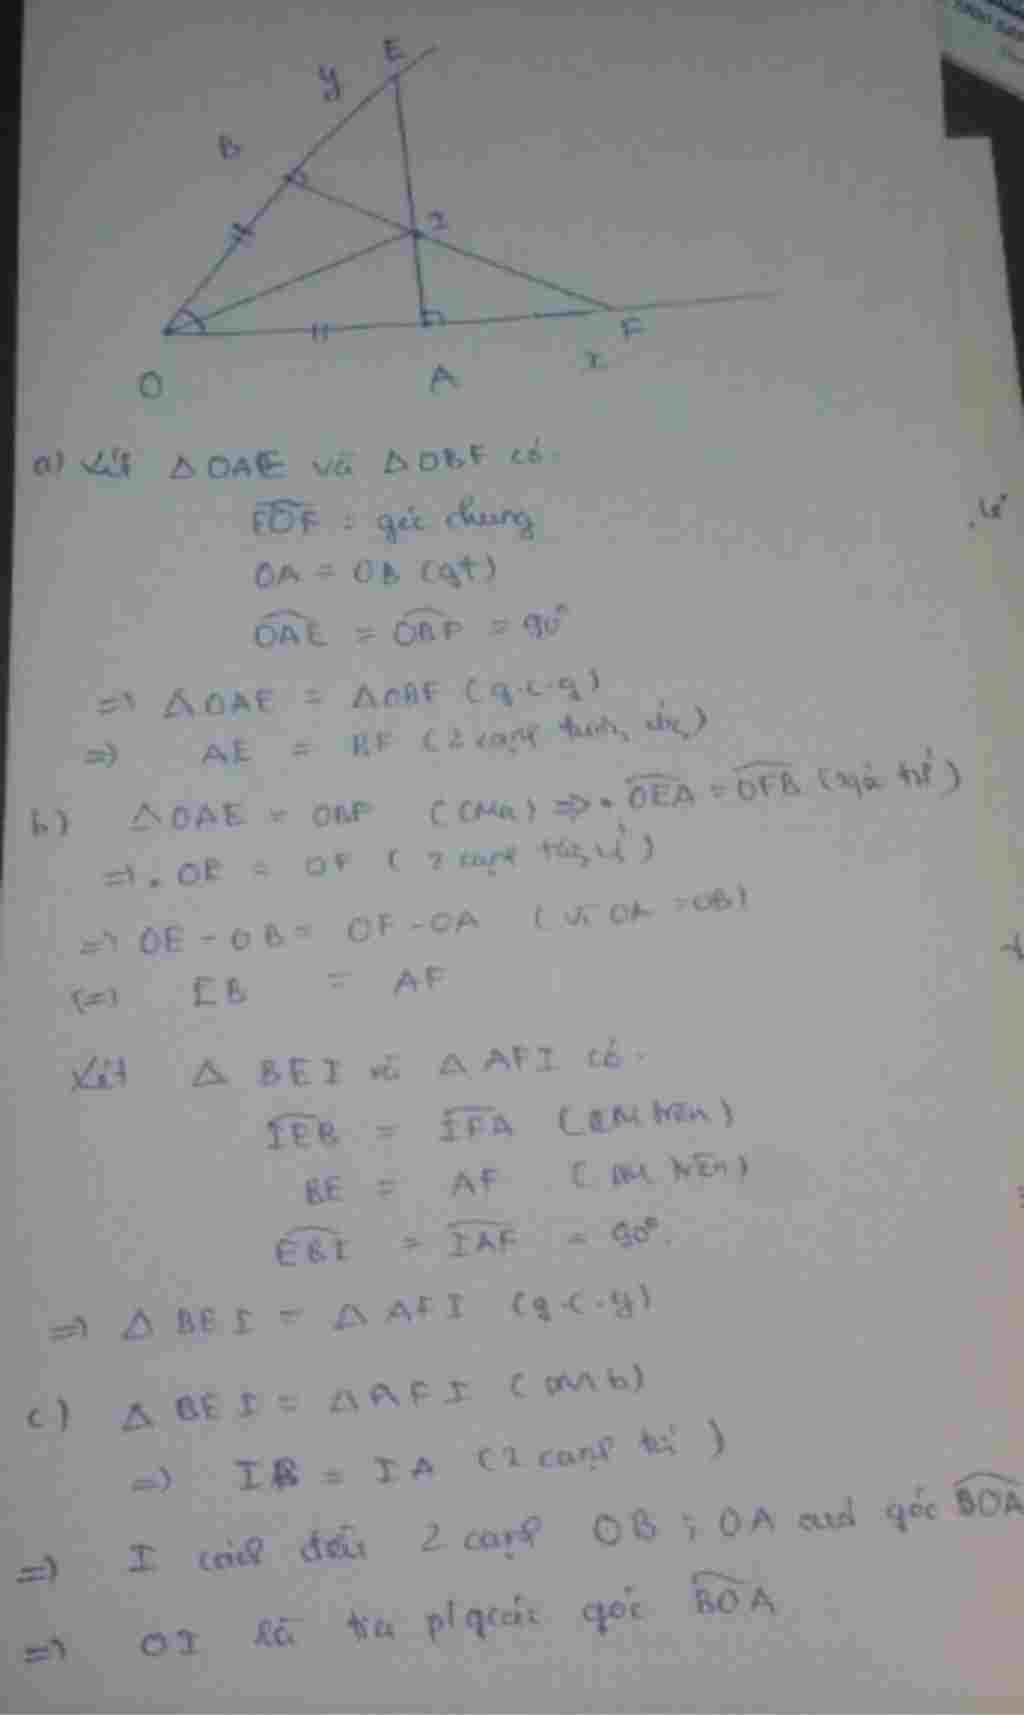 E
y
B
I
O
A
x
F
a) Xét Δ OAE và Δ OBF có.
EOF : góc chung
OA = OB (gt)
OAE = OBF = 90°
=> Δ OAE = ΔOBF (g.c.g)
=> AE = BF (2 cạnh)
b) Δ OAE = OBF (CMa) => • OEA = OFB
=> • OE = OF (2 cạnh)
=> OE - OB = OF - OA (vì OA = OB)
(=) EB = AF
Xét Δ BEI và Δ AFI có.
IEB = IFA (CM trên)
BE = AF (CM trên)
EBI = IAF = 90°.
=> Δ BEI = Δ AFI (g.c.g)
c) Δ BEI = Δ AFI (CM b)
=> IB = IA (2 cạnh)
=> I cách đều 2 cạnh OB ; OA góc BOA
=> OI là tia góc BOA